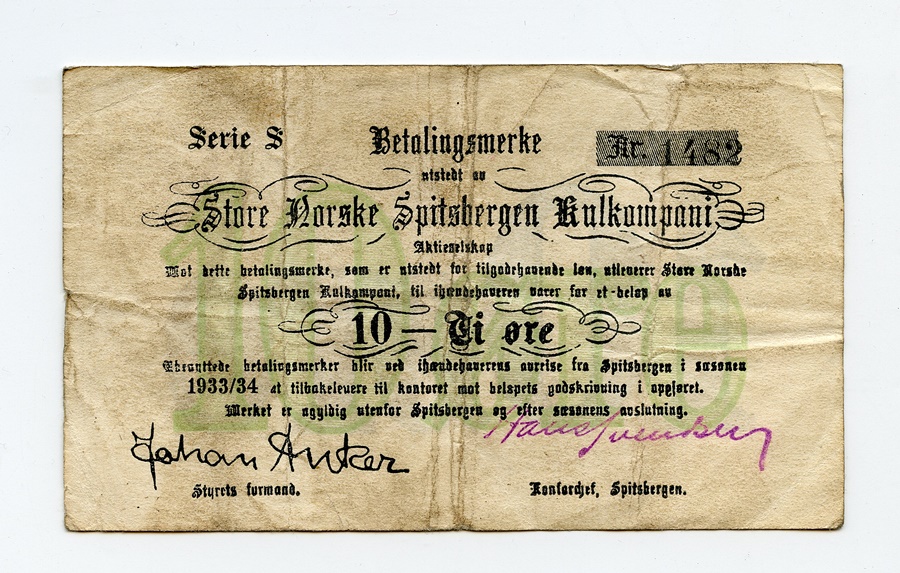 Serie S Betalingsmerke Nr. 1482
utstedt av
Store Norske Spitsbergen Kulkompani
Aktieselskap
Mot dette betalingsmerke, som er utstedt for tilgodehavende løn, utleverer Store Norske
Spitsbergen Kulkompani, til ihændehaveren varer for et beløp av
10 — Ti øre
Ubenyttede betalingsmerker blir ved ihændehaverens avreise fra Spitsbergen i sæsonen
1933/34 at tilbakelevere til kontoret mot beløpets godskrivning i opgjøret.
Merket er ugyldig utenfor Spitsbergen og efter sæsonens avslutning.
Johan Anker
Styrets formand. Kontorchef, Spitsbergen.